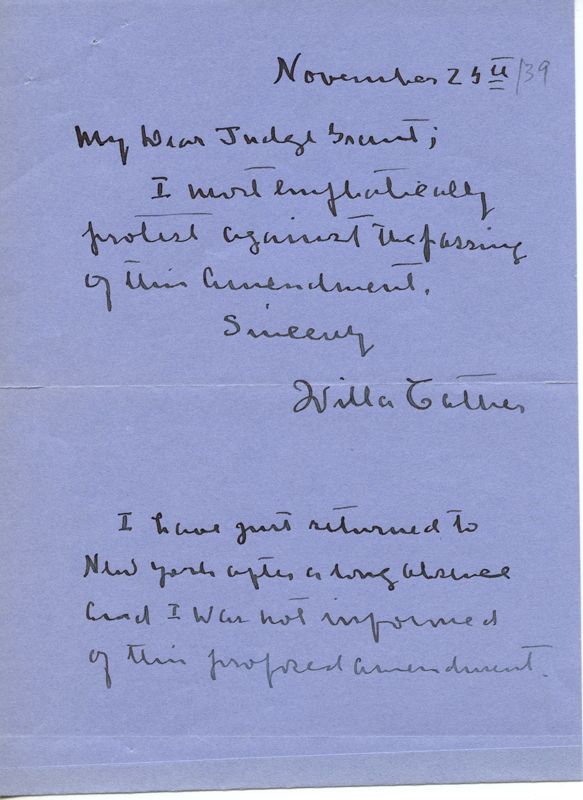 November 25th /39
My Dear Judge Grant;
I most emphatically
protest against the passing
of this amendment.
Sincerely
Willa Cather
I have just returned to
New York after a long absence
and I was not informed
of this proposed amendment.